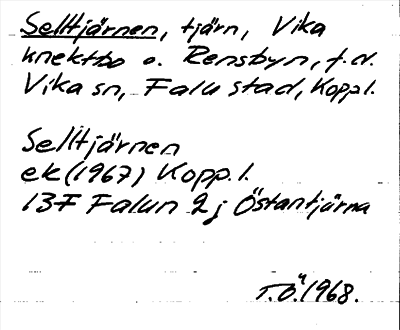 Selltjärnen, tjärn, Vika
knektbo o. Rensbyn, f.d.
Vika sn, Falu stad, Koppl.
Selltjärnen
ek (1967) Kopp.l.
13F Falun 2 j Östantjärna
T.Ö. 1968.